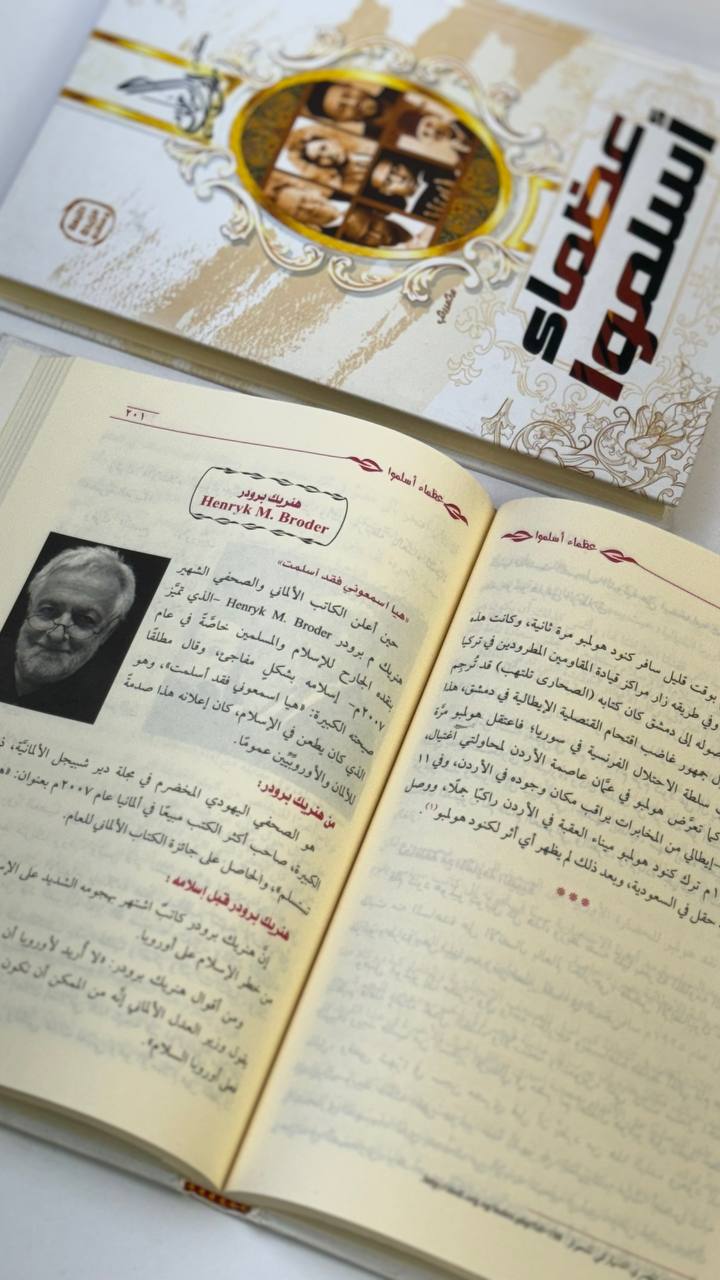 عظماء
أسلموا
عظماء أسلموا
بوقت قليل سافر كنود هولمبو مرة ثانية، وكانت هذه
وفي طريقه زار مراكز قيادة المقاومين المطرودين في تركيا
صوله إلى دمشق كان كتابه (الصحارى تلتهب) قد تُرجِم
جمهور غاضب اقتحام القنصلية الإيطالية في دمشق، هذا
سلطة الاحتلال الفرنسية في سوريا؛ فاعتقل هولمبو مرَّة
كما تعرَّض هولمبو في عمَّان عاصمة الأردن لمحاولتي اغتيال،
إيطالي من المخابرات يراقب مكان وجوده في الأردن، وفي ١١
ترك كنود هولمبو ميناء العقبة في الأردن راكبًا جملًا، ووصل
حقل في السعودية، وبعد ذلك لم يظهر أي أثر لكنود هولمبو(١).
***
عظماء أسلموا
٢٠١
هنريك برودر
Henryk M. Broder
«هيا اسمعوني فقد أسلمت»
حين أعلن الكاتب الألماني والصحفي الشهير
هنريك م برودر Henryk M. Broder -الذي تميَّز
بنقده الجارح للإسلام والمسلمين خاصَّةً في عام
٢٠٠٧م- إسلامه بشكلٍ مفاجئ، وقال مطلقًا
صيحته الكبيرة: «هيا اسمعوني فقد أسلمت»، وهو
الذي كان يطعن في الإسلام، كان إعلانه هذا صدمةً
للألمان والأوروبيِّين عمومًا.
من هنريك برودر:
هو الصحفي اليهودي المخضرم في مجلة دير شبيجل الألمانيَّة،
الكبيرة، صاحب أكثر الكتب مبيعًا في ألمانيا عام ٢٠٠٧م بعنوان:
نستسلم»، والحاصل على جائزة الكتاب الألماني للعام.
هنريك برودر قبل إسلامه:
إنَّ هنريك برودر كاتبٌ اشتهر بهجومه الشديد على
من خطر الإسلام على أوروبا.
ومن أقوال هنريك برودر: «لا أريد لأوروبا أن
يقول وزير العدل الألماني إنَّه من الممكن أن تكون
على أوروبا السلام».